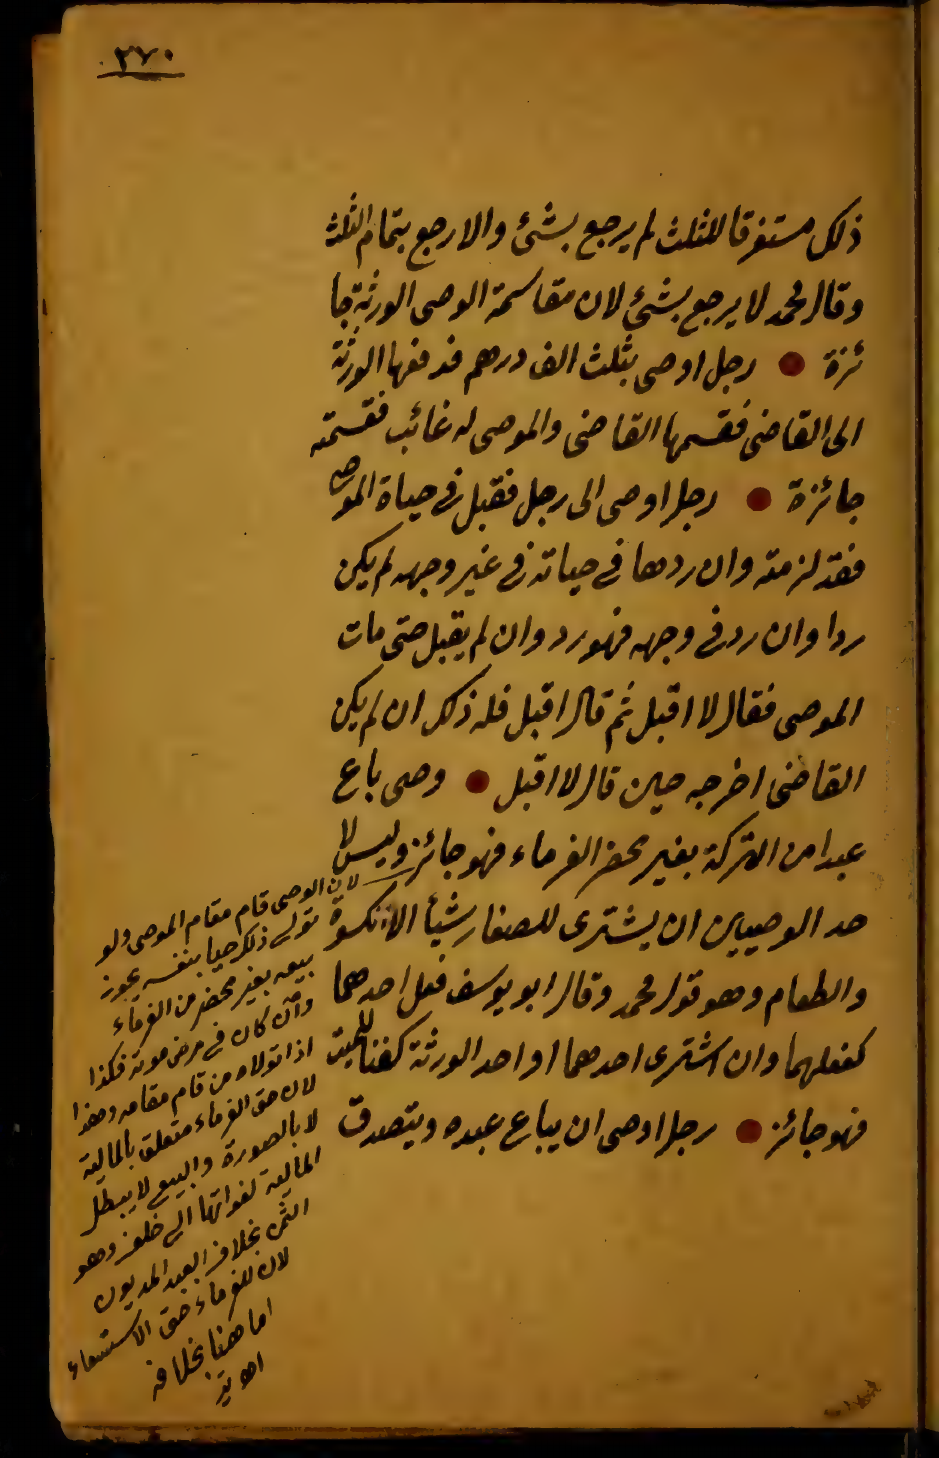 ٢٧٠
ذلك مستغرقا للثلث لم يرجع بشئ والا رجع بتمام الثلث
وقال محمد لا يرجع بشئ لان مقاسمة الوصى الورثة جا
ئزة ● رجل اوصى بثلث الف درهم فدفعها الورثة
الى القاضى فقسمها القاضى والموصى له غائب فقسمته
جائزة ● رجل اوصى الى رجل فقبل فى حياة الموصى
فقد لزمته وان ردها فى حياته فى غير وجهه لم يكن
ردا وان رد فى وجهه فهو رد وان لم يقبل حتى مات
الموصى فقال لا اقبل ثم قال اقبل فله ذلك ان لم يكن
القاضى اخرجه حين قال لا اقبل ● وصى باع
عبدا من التركة بغير محضر الغرماء فهو جائز وليس لا
حد الوصيين ان يشترى للصغار شيأ الا الكسوة
والطعام وهو قول محمد وقال ابو يوسف فعل احدهما
كفعلهما وان اشترى احدهما او احد الورثة كفنا للميت
فهو جائز ● رجل اوصى ان يباع عبده ويتصدق
لان الوصى قام مقام الموصى ولو
تولى ذلك حيا بنفسه يجوز
بيعه بغير محضر من الغرماء
وان كان فى مرض موته فكذا
اذا تولاه من قام مقامه وهذا
لان حق الغرماء متعلق بالمالية
لا بالصورة والبيع لا يبطل
المالية لفواتها الى خلف وهو
الثمن بخلاف العبد المديون
لان للغرماء حق الاستسعاء
اما ههنا بخلافه
اهـ